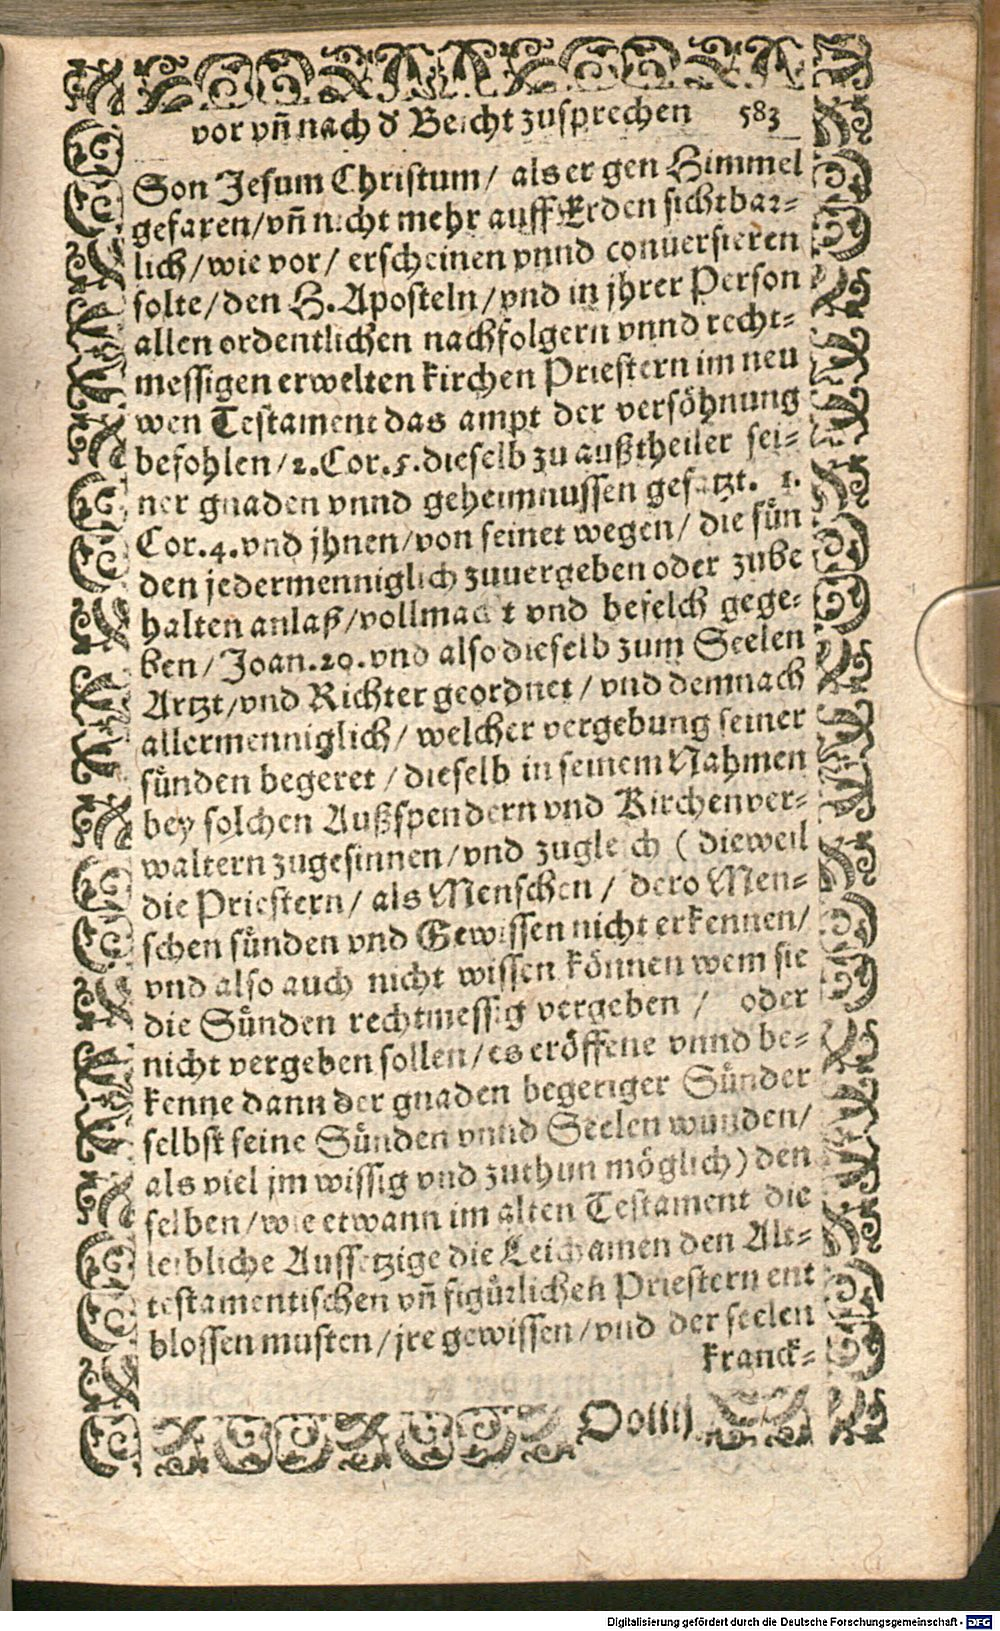 vor vñ nach d' Beicht zusprechen 583
Son Jesum Christum/ als er gen Himmel
gefaren/vñ nicht mehr auff Erden sichtbar-
lich/wie vor/ erscheinen vnnd conuersieren
solte/den H. Aposteln/vnd in jhrer Person
allen ordentlichen nachfolgern vnnd recht-
messigen erwelten kirchen Priestern im neu
wen Testament das ampt der versöhnung
befohlen/2.Cor.5.dieselb zu außtheiler sei-
ner gnaden vnnd geheimnussen gesatzt. 1.
Cor.4.vnd jhnen/von seinet wegen/ die sün
den jedermenniglich zuuergeben oder zube
halten anlaß/vollmacht vnd befelch gege-
ben/Joan.20.vnd also dieselb zum Seelen
Artzt/vnd Richter geordnet/ vnd demnach
allermenniglich/ welcher vergebung seiner
sünden begeret/dieselb in seinem Nahmen
bey solchen Außspendern vnd Kirchenver-
waltern zugesinnen/vnd zugleich (dieweil
die Priestern/ als Menschen/ dero Men-
schen sünden vnd Gewissen nicht erkennen/
vnd also auch nicht wissen können wem sie
die Sünden rechtmessig vergeben/ oder
nicht vergeben sollen/es eröffene vnnd be-
kenne dann der gnaden begeriger Sünder
selbst seine Sünden vnnd Seelen wunden/
als viel jm wissig vnd zuthun möglich) den
selben/wie etwann im alten Testament die
leibliche Aussetzige die Leichamen den Alt-
testamentischen vñ figürlichen Priestern ent
blossen musten/jre gewissen/vnd der seelen
kranck-
Oo iiij
Digitalisierung gefördert durch die Deutsche Forschungsgemeinschaft - DFG